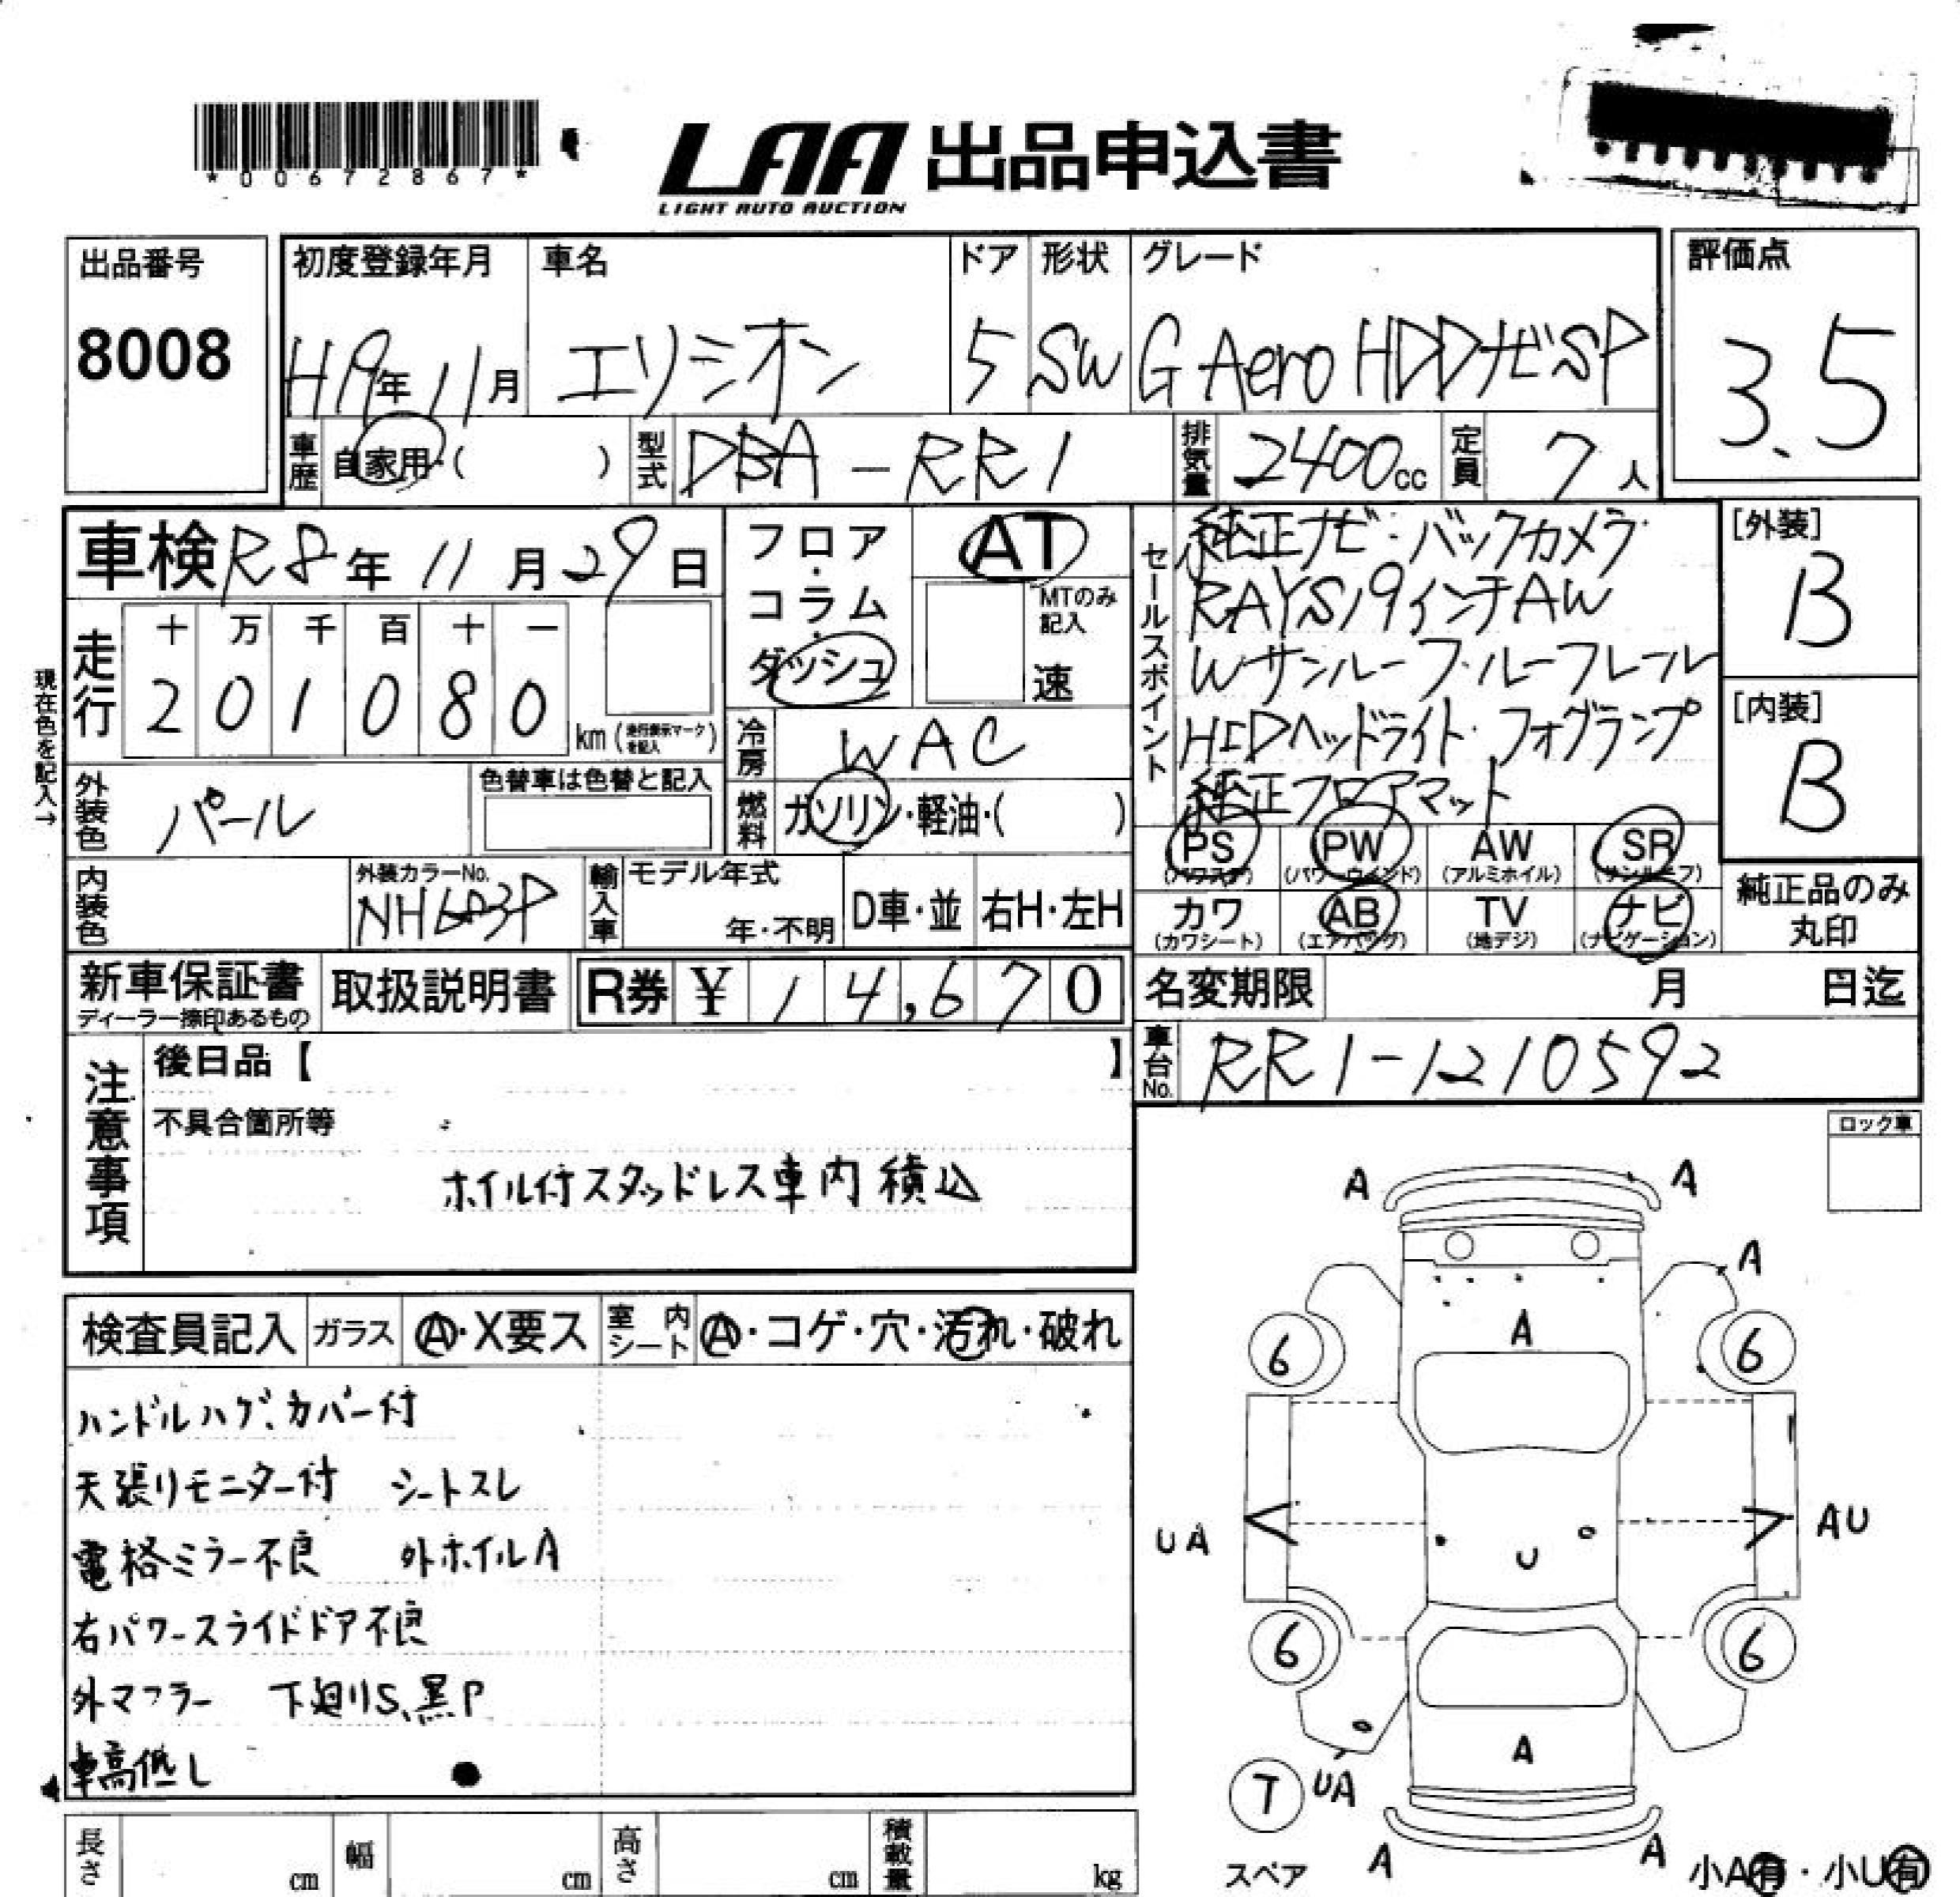 *00672867*
LAA 出品申込書
LIGHT AUTO AUCTION
出品番号
8008
初度登録年月
H19年11月
車名
エリシオン
ドア
5
形状
SW
グレード
G Aero HDDナビSP
評価点
3.5
車歴
自家用・( )
型式
DBA-RR1
排気量
2400cc
定員
7人
車検 R8年11月29日
フロア・コラム・ダッシュ
AT
MTのみ記入
速
走行
十 万 千 百 十 一
2 0 1 0 8 0 km (走行表示マークを記入)
現在色を記入→
冷房
WAC
外装色
パール
色替車は色替と記入
燃料
ガソリン・軽油・( )
内装色
外装カラーNo.
NH603P
輸入車
モデル年式
年・不明
D車・並
右H・左H
セールスポイント
純正ナビ・バックカメラ
RAYS19インチAW
Wサンルーフ・ルーフレール
HIDヘッドライト・フォグランプ
純正フロアマット
[外装]
B
[内装]
B
PS (パワステ)
PW (パワーウィンド)
AW (アルミホイル)
SR (サンルーフ)
カワ (カワシート)
AB (エアバッグ)
TV (地デジ)
ナビ (ナビゲーション)
純正品のみ丸印
新車保証書
ディーラー捺印あるもの
取扱説明書
R券 ¥ 14,670
名変期限 月 日迄
車台No.
RR1-1210592
注意事項
後日品【 】
不具合箇所等
ホイル付スタッドレス車内積込
ロック車
検査員記入
ガラス
A・X要ス
室内シート
A・コゲ・穴・汚れ・破れ
ハンドルハゲ、カバー付
天張りモニター付 シートスレ
電格ミラー不良 外ホイルA
右パワースライドドア不良
外マフラー 下廻りS、黒P
車高低し
A A
A
A
6 6
UA AU
U
6 6
A
T UA
スペア
A A
小A有・小U有
長さ cm
幅 cm
高さ cm
積載量 kg